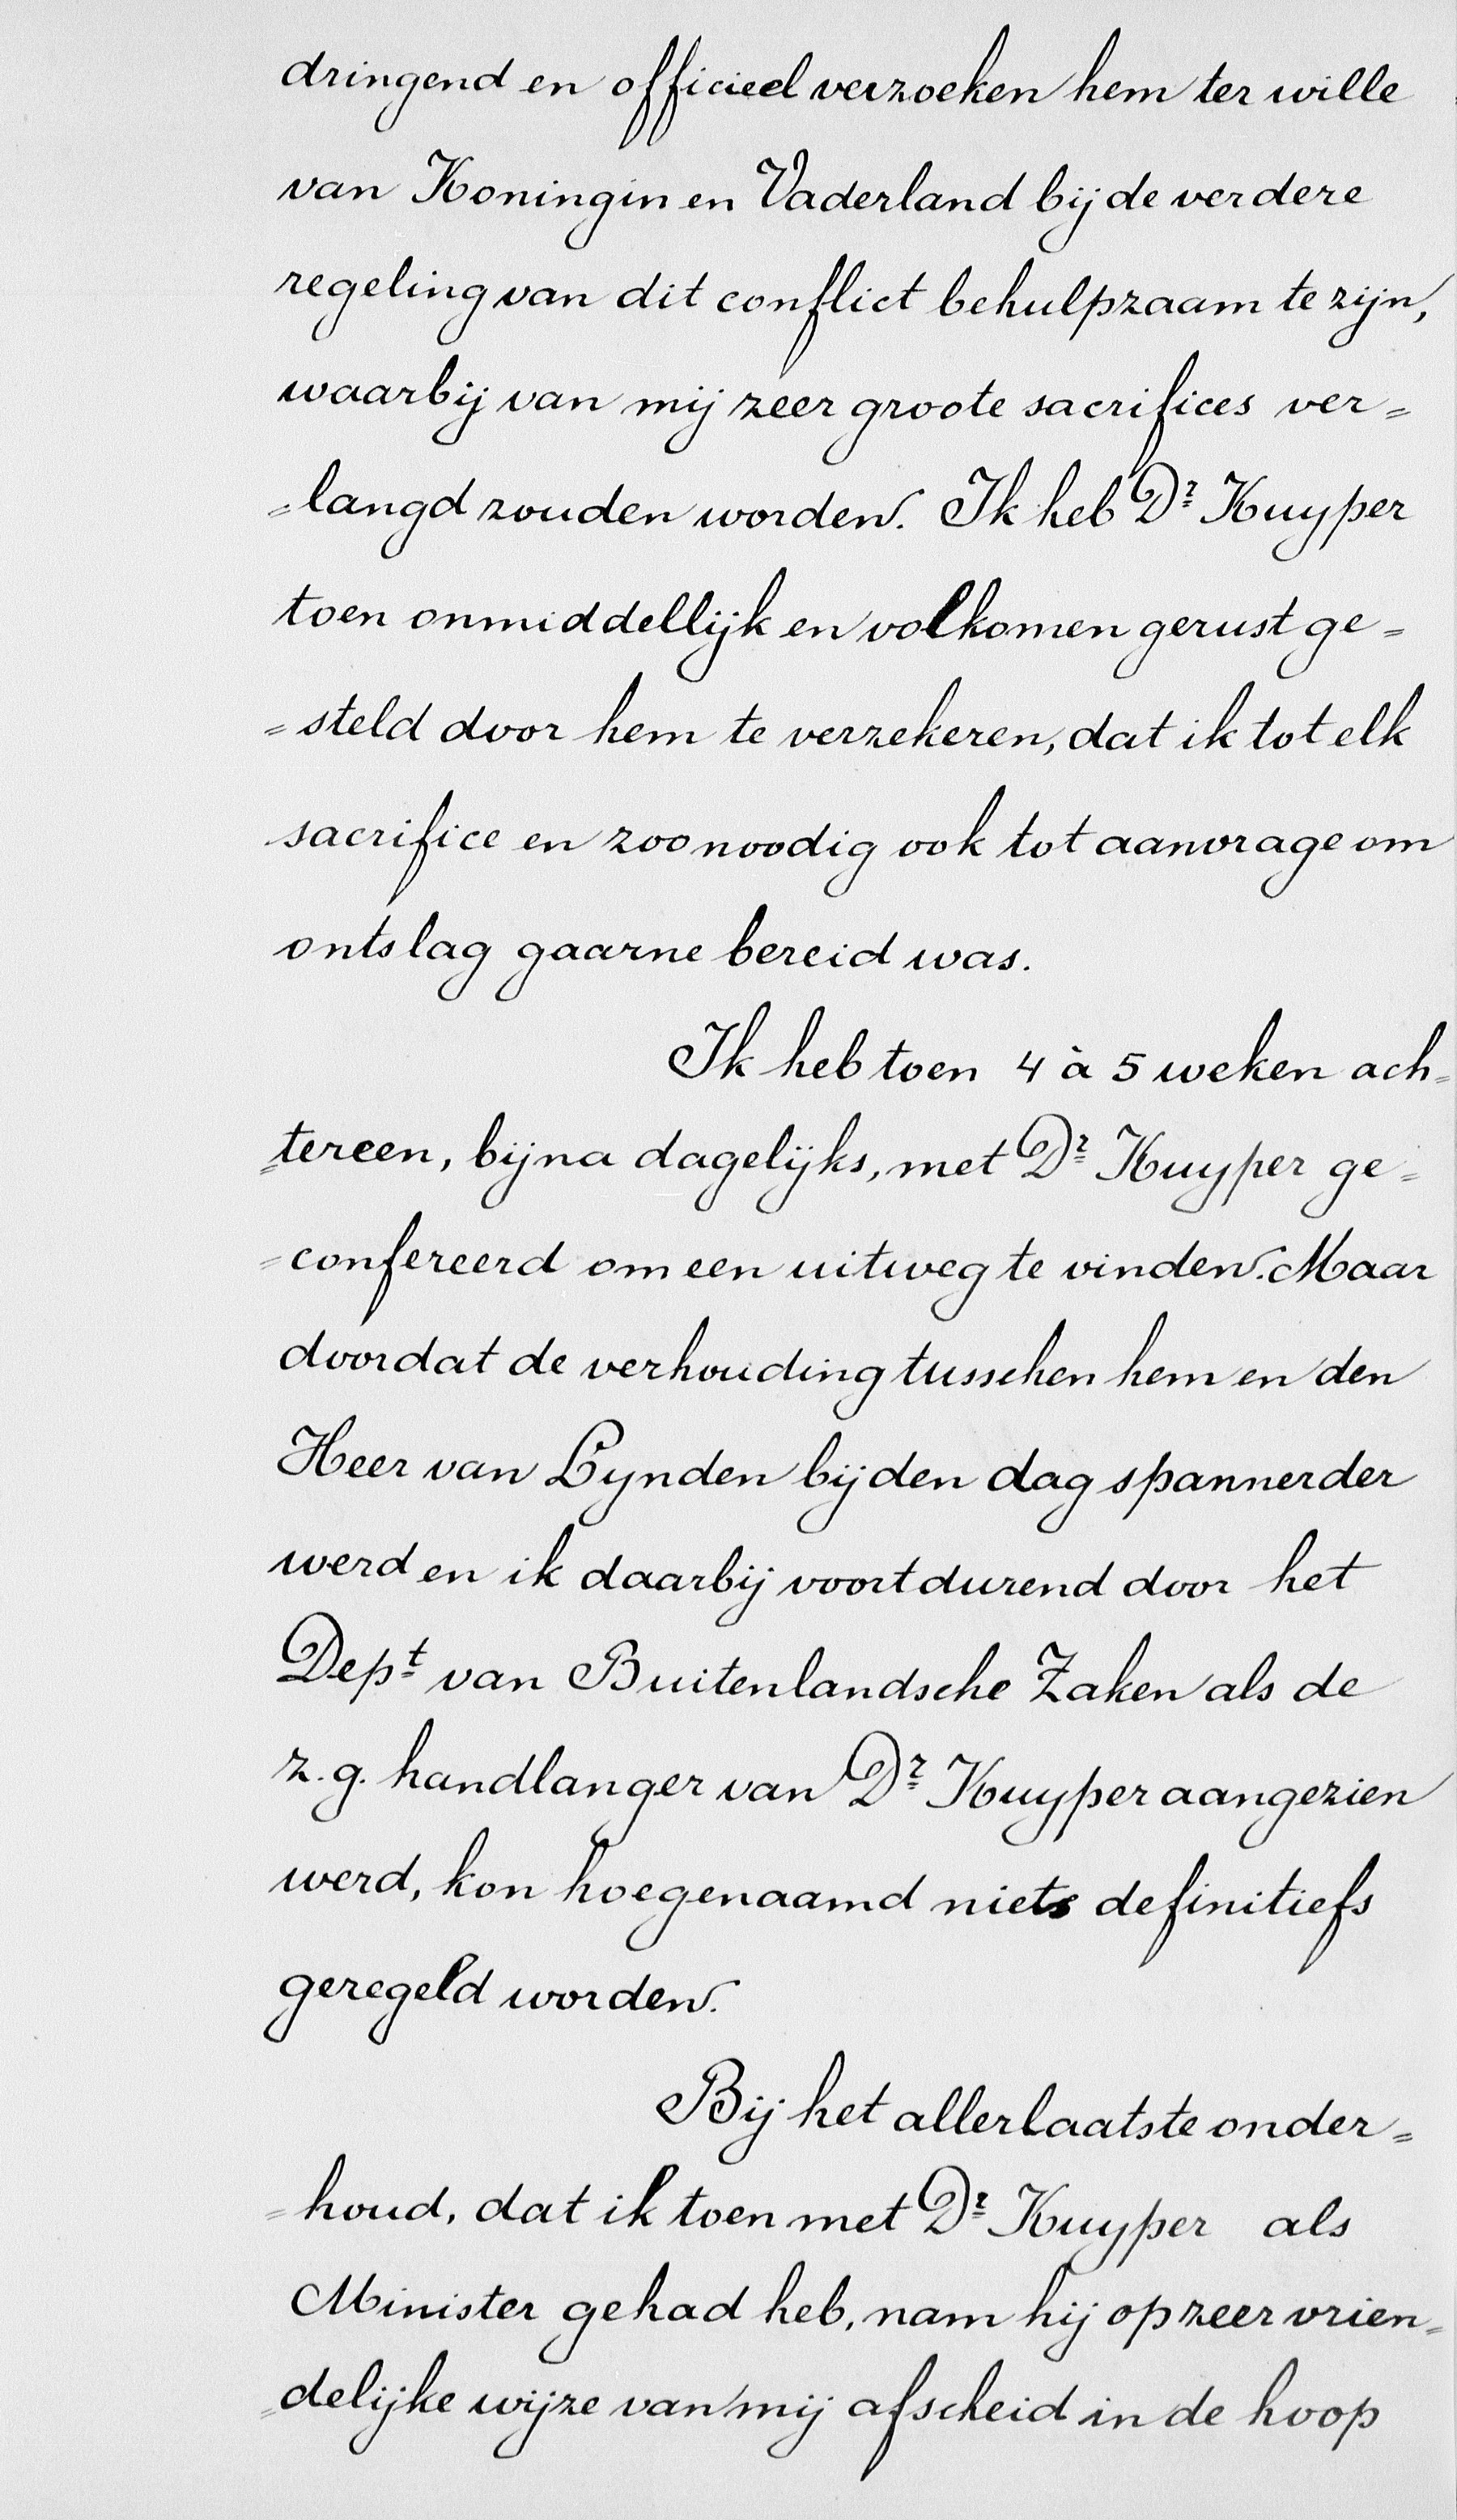 dringend en officieel verzoeken hem ter wille
van Koningin en Vaderland bij de verdere
regeling van dit conflict behulpzaam te zijn,
waarbij van mij zeer groote sacrifices ver=
=langd zouden worden. Ik heb Dr Kuyper
toen onmiddellijk en volkomen gerust ge=
=steld door hem te verzekeren, dat ik tot elk
sacrifice en zoo noodig ook tot aanvrage om
ontslag gaarne bereid was.
Ik heb toen 4 à 5 weken ach=
=tereen, bijna dagelijks, met Dr Kuyper ge=
=confereerd om een uitweg te vinden. Maar
doordat de verhouding tusschen hem en den
Heer van Lynden bij den dag spannender
werd en ik daarbij voortdurend door het
Dept van Buitenlandsche Zaken als de
z.g. handlanger van Dr Kuyper aangezien
werd, kon hoegenaamd niets definitiefs
geregeld worden.
Bij het allerlaatste onder=
=houd, dat ik toen met Dr Kuyper als
Minister gehad heb, nam hij op zeer vrien=
=delijke wijze van mij afscheid in de hoop